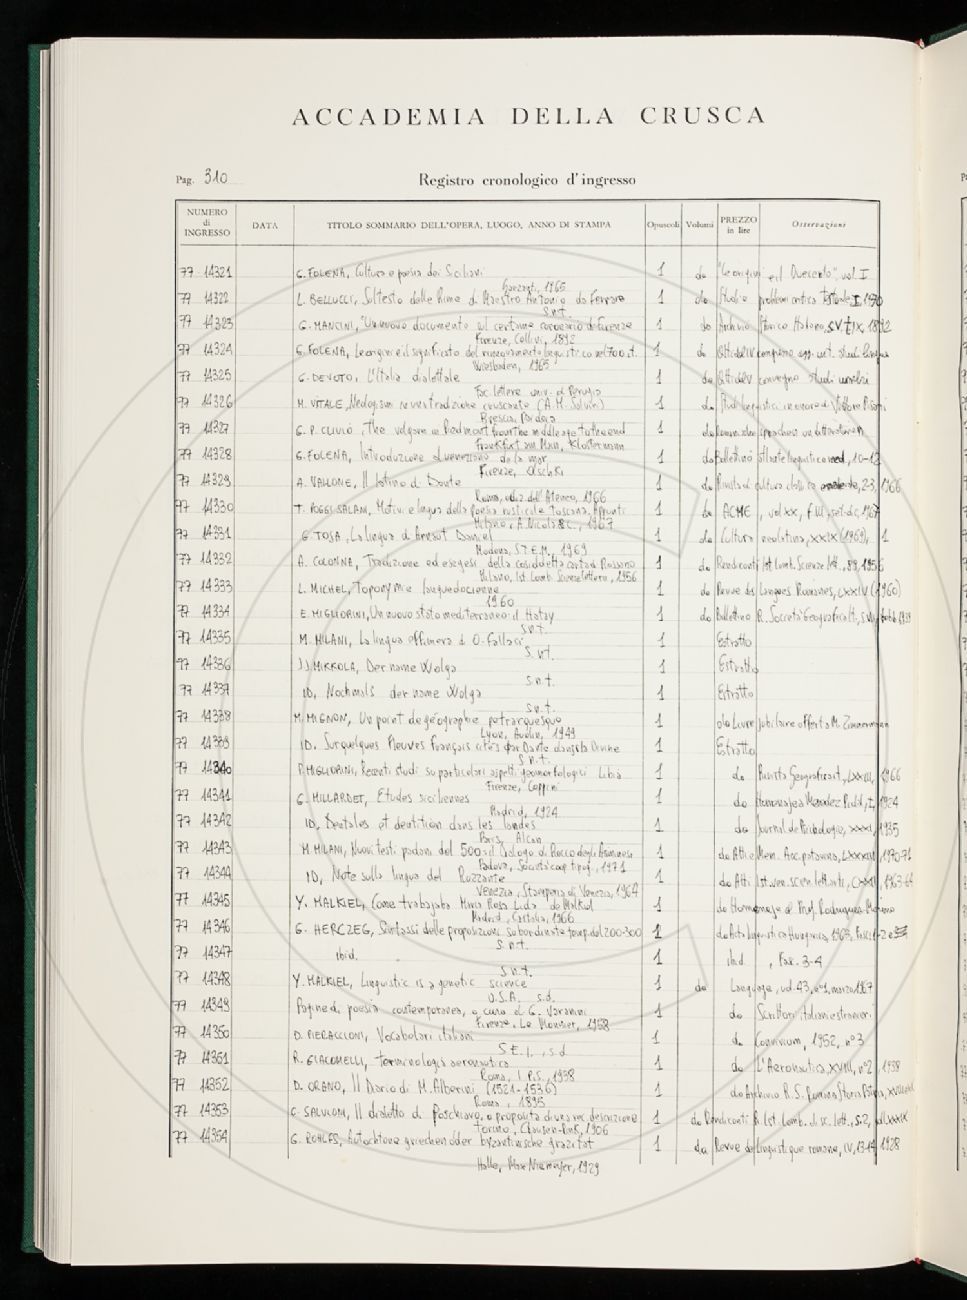 ACCADEMIA DELLA CRUSCA
Pag. 310
Registro cronologico d'ingresso
NUMERO di INGRESSO DATA TITOLO SOMMARIO DELL'OPERA, LUOGO, ANNO DI STAMPA Opuscoli Volumi PREZZO in lire Osservazioni
77 14321 G. FOLENA, Cultura e poesia dei Siciliani 1 da "Le origini e il Duecento", vol. I
1965
77 14322 L. BELLUCCI, Sul testo delle Rime di Maestro Antonio da Ferrara 1 da Studi e problemi critica testuale I, 1970
S.n.t.
77 14323 G. MANCINI, Un nuovo documento sul certame coronario di Firenze 1 da Archivio Storico Italiano, s.V, t. IX, 1892
Firenze, Cellini, 1892
77 14324 G. FOLENA, Le origini e il significato del rinnovamento linguistico nel 700 it. 1 da Atti del IV
Wiesbaden, 1965
77 14325 G. DEVOTO, L'Italia dialettale 1 da Atti del V convegno studi umbri
Fac. lettere univ. di Perugia
77 14326 M. VITALE, (A. M. Salvini) 1 da Studi linguistici in onore di Vittore Pisani
Brescia, Paideia
77 14327 G. P. CLIVIO, The volgare in Piedmont from the middle ages to the end 1 da
Frankfurt am Main, Klostermann
77 14328 G. FOLENA, Introduzione al veneziano de là da mar 1 da Bollettino atlante linguistico med., 10-12
Firenze, Olschki
77 14329 A. VALLONE, Il latino di Dante 1 da Rivista di cultura class. e medievale, 2-3, 1966
Roma, ediz. dell'Ateneo, 1966
77 14330 T. POGGI SALANI, Motivi e lingua della poesia rusticale toscana. Appunti 1 da ACME, vol. XX, f. III, set-dic, 1967
Milano, A. Nicola & C., 1967
77 14331 G. TOJA, La lingua di Arnaut Daniel 1 da Cultura neolatina, XXIX (1969), 1
Modena, S.T.E.M., 1969
77 14332 A. COLONNA, Tradizione ed esegesi della cosiddetta carta di Rossano 1 da Rendiconti Ist. Lomb. Scienze lett., 89, 1956
Milano, Ist. Lomb. Scienze lettere, 1956
77 14333 L. MICHEL, Toponymie languedocienne 1 da Revue des Langues Romanes, LXXIV (1960)
1960
77 14334 E. MIGLIORINI, Un nuovo stato mediterraneo: il Hatay 1 da Bollettino R. Società Geografica It., 1939
S.n.t.
77 14335 M. MILANI, La lingua effimera di O. Fallaci 1 Estratto
S.n.t.
77 14336 J.J. MIKKOLA, Der name Wolga 1 Estratto
S.n.t.
77 14337 ID, Nochmals der name Wolga 1 Estratto
S.n.t.
77 14338 M. MIGNON, Un point de géographie petrarquesque 1 da Livre jubilaire offert à M. Zimmermann
Lyon, Audin, 1949
77 14339 ID. Sur quelques fleuves français cités par Dante dans la Divine 1 Estratto
S.n.t.
77 14340 P. MIGLIORINI, Recenti studi su particolari aspetti geomorfologici Libia 1 da Rivista Geografica it., LXXIII, 1966
Firenze, Coppini
77 14341 G. MILLARDET, Études siciliennes 1 da Homenaje a Menendez Pidal, I, 1924
Madrid, 1924
77 14342 ID, Dentales et dentition dans les landes 1 da Journal de Psichologie, XXXII, 1935
Paris, Alcan
77 14343 M. MILANI, Nuovi testi padani del 500: il Dialogo di Rocco degli Ariminesi 1 da Atti e Mem. Acc. patavina, LXXXIII, 1970-71
Padova, Società coop. tipog., 1971
77 14344 ID, Note sulla lingua del Ruzzante 1 da Atti Ist. ven. scien. lett. arti, CXXII, 1963-64
Venezia, Stamperia di Venezia, 1964
77 14345 Y. MALKIEL, Como trabajaba Maria Rosa Lida de Malkiel 1 da Homenaje al Prof. Rodriguez-Moñino
Madrid, Castalia, 1966
77 14346 G. HERCZEG, Sintassi delle proposizioni subordinate temp. del 200-300 1 da Acta linguistica Hungarica, 1963, Fasc. 1-2
S.n.t.
77 14347 ibid. 1 ibid., Fax. 3-4
S.n.t.
77 14348 Y. MALKIEL, Linguistic is a genetic science 1 da Language, vol. 43, n°1, marzo 1967
U.S.A. s.d.
77 14349 Pagine di poesia contemporanea, a cura di G. Varanini 1 da Scrittori italiani e stranieri
Firenze, Le Monnier, 1958
77 14350 D. PIERACCIONI, Vocabolari italiani 1 da Convivium, 1952, n°3
S.E.I., s.d
77 14351 R. GIACOMELLI, Terminologia aeronautica 1 da L'Aeronautica, XVIII, n°2, 1938
Roma, I.P.S., 1938
77 14352 D. ORANO, Il Diario di M. Alberini (1521-1536) 1 da Archivio R. S. Romana Storia Patria, XVIII
Roma, 1895
77 14353 C. SALVIONI, Il dialetto di Poschiavo, a proposito di una rec. descrizione 1 da Rendiconti R. Ist. Lomb. di sc. lett., s.2, vol. XXXIX
Torino, Clausen-Rink, 1906
77 14354 G. ROHLFS, Autochtone griechen oder byzantinische grazitat 1 da Revue de linguistique romane, IV, 13-14, 1928
Halle, Max Niemeyer, 1929